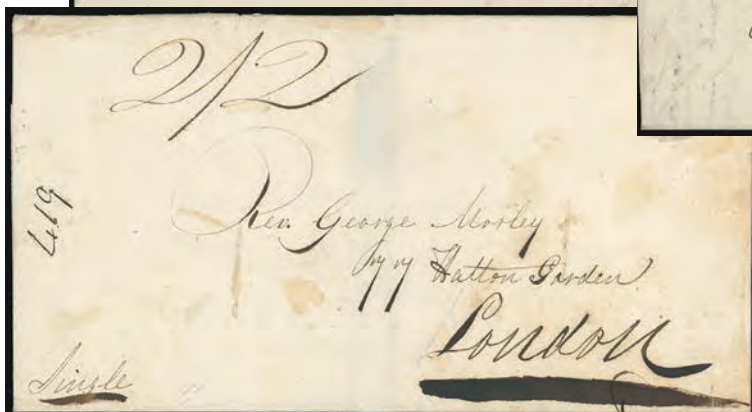 2/2
419
Rev. George Morley
77 Hatton Garden
London
Single